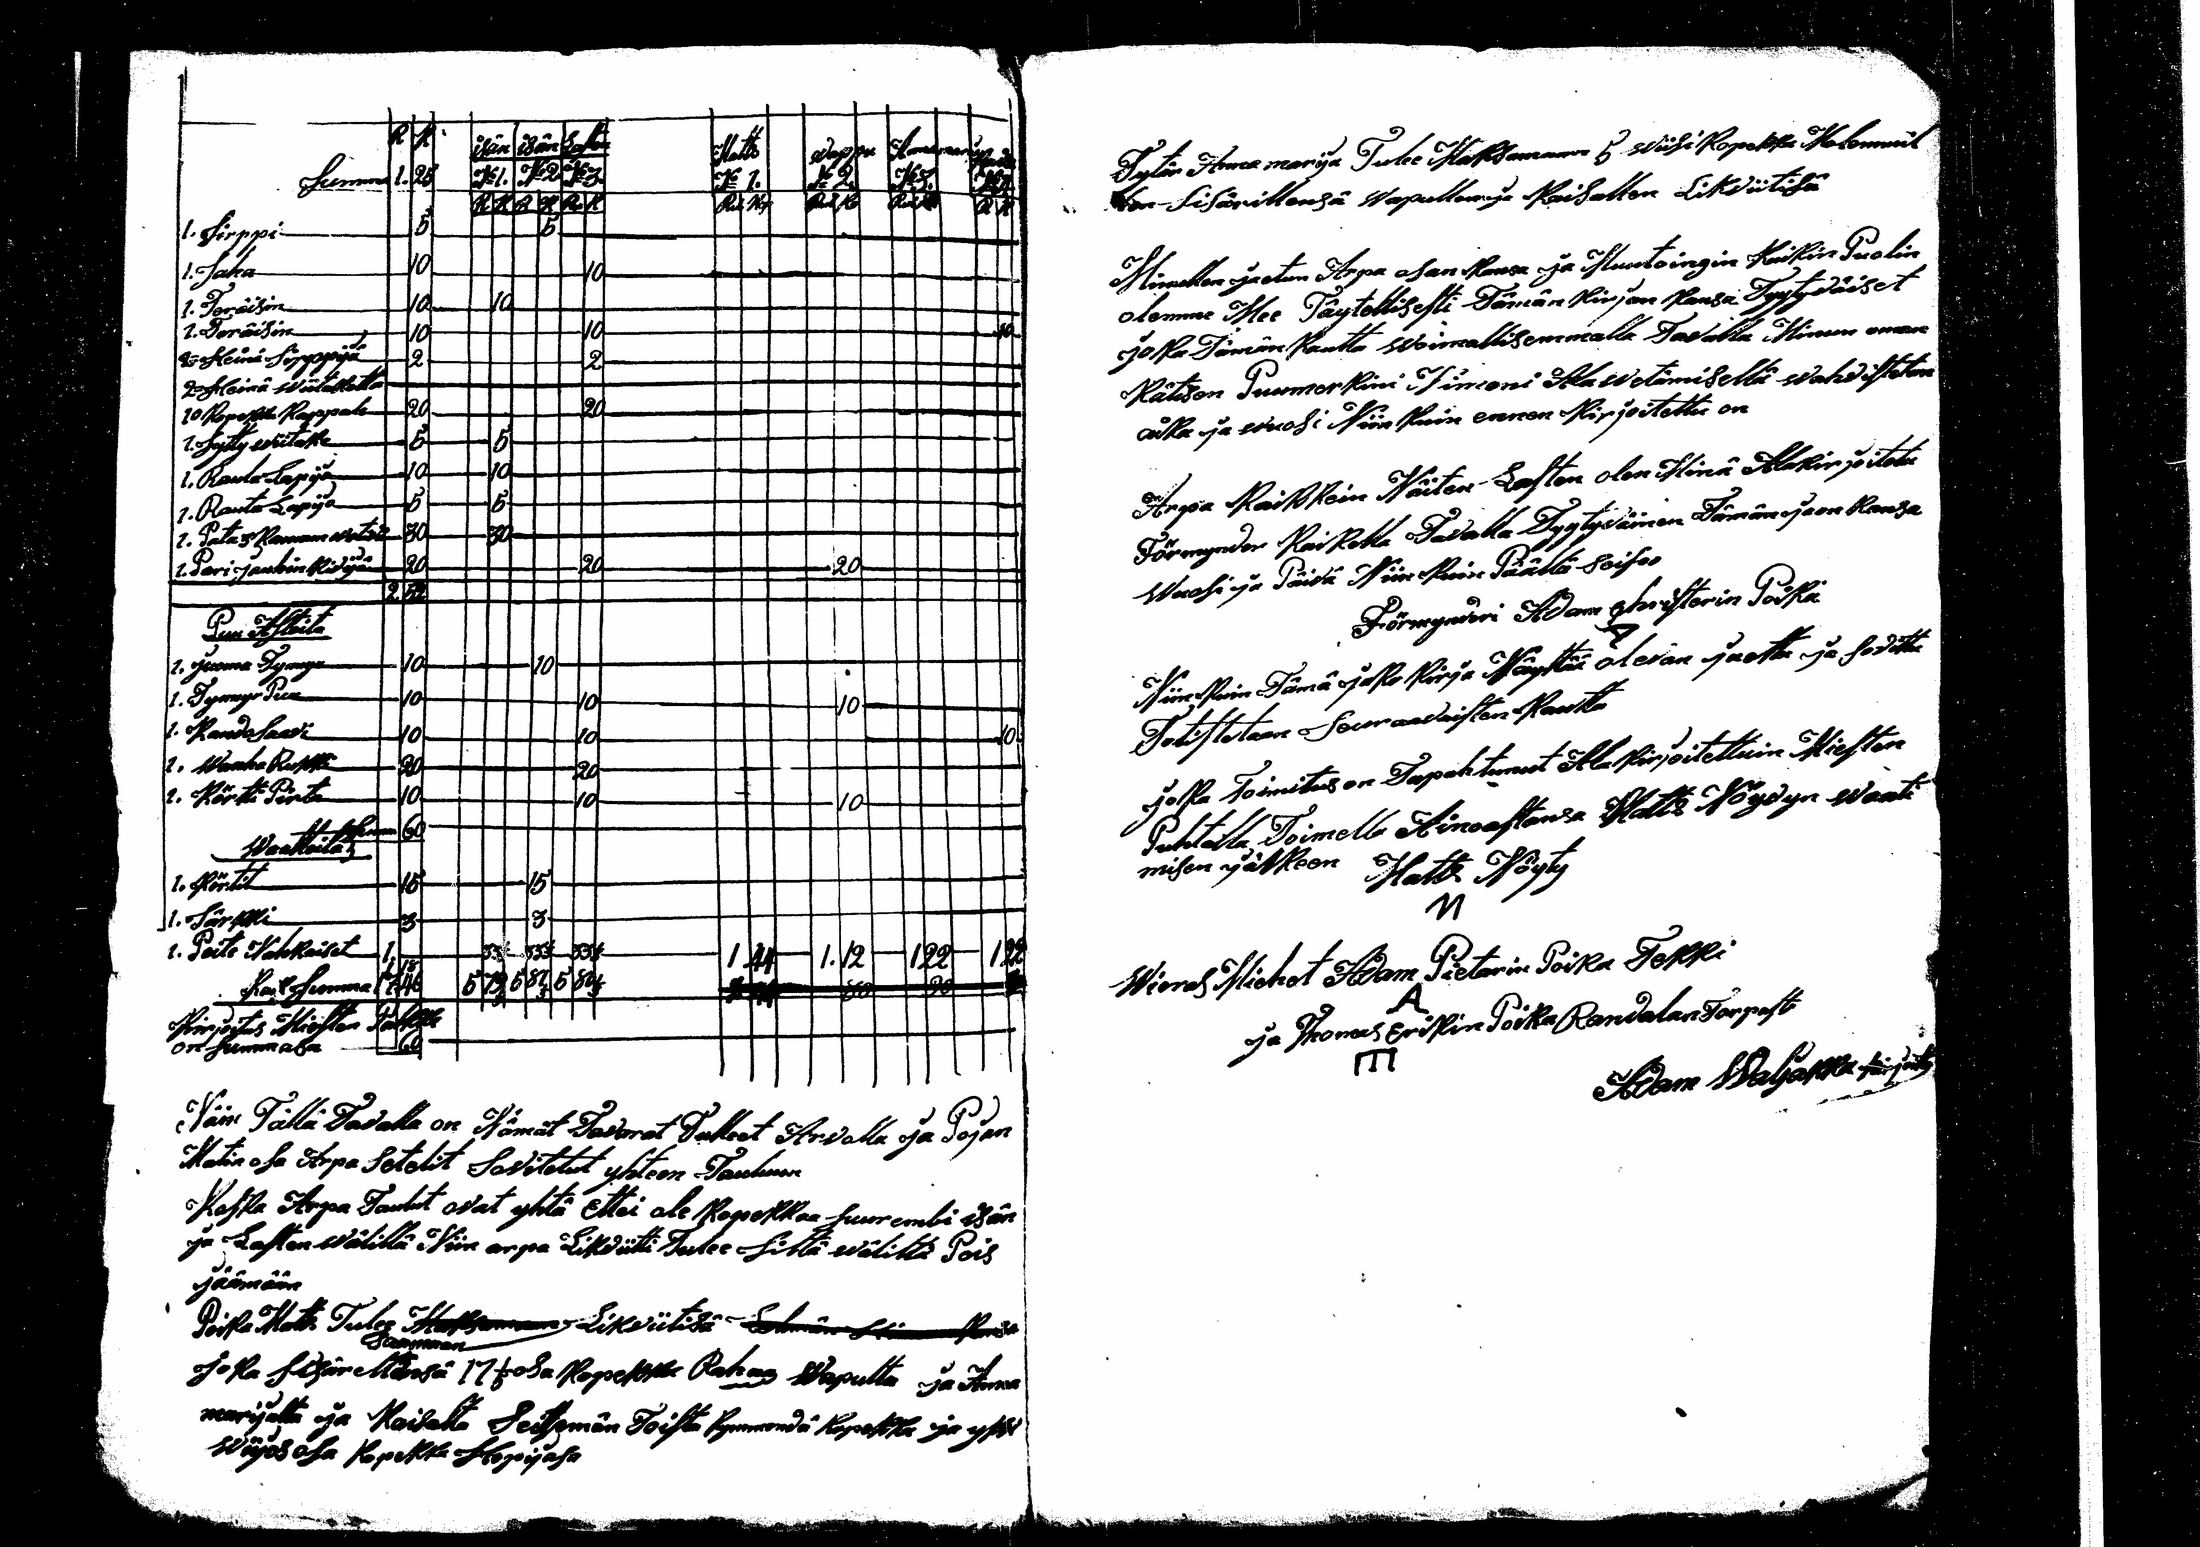 R K isän isän Lasten Matts wappu Annamarija Kaisa
Summa 1. 25 No 1. No 2 No 3 No 1. No 2. No 3. No 4
R K R K Ru K Ru Kp Ru Ko Ru K R K
1. Sirppi 5 5
1. Saha 10 10
1. Toräisin 10 10
1. Toräisin 10 10 10
2 Heinä Sirppijä 2 2
2 Heinä wiitaketta
10 Kopekka Kappale 20 20
1. Sytty wiitake 5 5
1. Rauta Lapija 10 10
1. Rauta Lapija 5 5
1. Pata 30 30
1. Pari jauhin kiviä 20 20 20
2. 52
Puu Astioita
1. juoma Tynnyr 10 10
1. Tynnyr Puu 10 10 10
1. Kando Saavi 10 10 10
1. wanha Rukki 20 20
1. Körtti Pirta 10 10 10
Summa 60
Waatteita
1. Körtit 15 15
1. Särkki 3 3
1. Peite Nahkaiset 1. 33⅓ 33⅓ 33⅓ 1 44 1. 12 1 22 1 22
Kaik Summa 17 46 5 79 5 81 5 84
Kirjoitus Miesten Palkka
on Summasa 60
Näin Tällä Tavalla on Nämät Tavarat Tulleet Arvolla ja Pojan
Matin osa Arpa Setelit Sovitetut yhteen Tauluun
Koska Arpa Taulut ovat yhtä Ettei ole kopekkaa suurembi isän
ja Lasten wälillä Niin arpa Likviitti Tulee Siltä wäliltä Pois
jäämään
Poika Matts Tulee Maksamaan Likviitisä
Saamaan
joka Sisäreltänsä 17⅕ osa kopekka Rahaa Wapulta ja Anna
marijalta ja Kaisalta Seitsemän Toista kymmendä kopekka ja yksi
wijdes osa kopekka Hopijasa
Tytär Anna marija Tulee Maksamaan 5 wiisi kopekka Molemmil
len Sisärillensä wapullen ja Kaisallen Likviitisä
Minullen jaetun Arpa osan kansa ja Muutoingin kaikin Puolin
olemme Mee Täytellisesti Tämän kirjan kansa Tyytyväiset
joka Tämän kautta woimallisemmalla Tavalla Minun oman
kätisen Puumerkini Nimeni Ala wetämisellä wahvistetan
aika ja wuosi Niin kuin ennen kirjoitettu on
Arpa kaikkein Näiten Lasten olen Minä Alakirjoitetu
Förmynder kaikella Tavalla Tyytyväinen Tämän jaon kansa
wuosi ja Päivä Niin kuin Päältä Seisoo
Förmynderi Adam christerin Poika
A
Niin kuin Tämä jako kirja Näyttää olevan jaettu ja Sovittu
Totistetaan Seuraavaisten kautta
jolka Toimitus on Tapahtunut Alakirjoitettuin Miesten
Puhtalla Toimella Ainoastansa Matts Nöydyn waati
misen jälkeen Matts Nöyty
N
Wieras Miehet Adam Pietarin Poika Tekki
A
ja Thomas Erikin Poika Randalan Torpast
E
Adam Waljakka kirjoitti